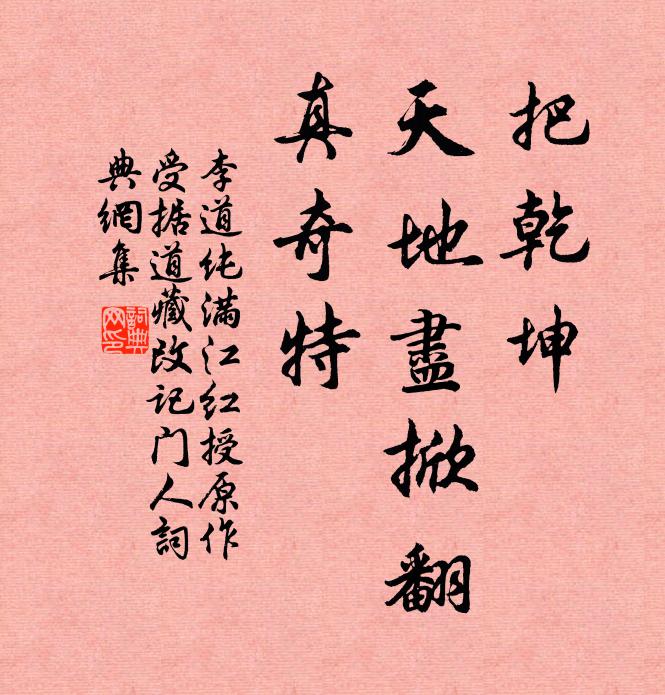 把乾坤
天地盡掀翻
真奇特
李道纯滿江红授原作
受据道藏改记门人詞
典網集
詞典
网印